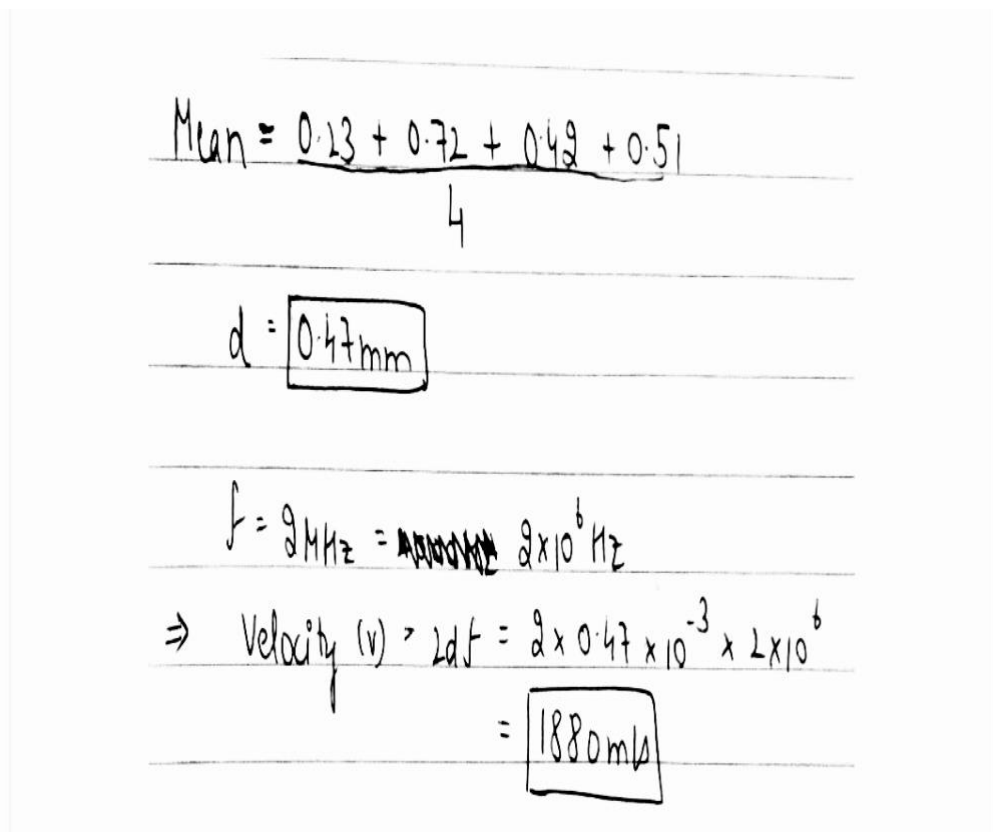 Mean = 0.23 + 0.72 + 0.42 + 0.51
4
d = 0.47mm
f = 2MHz = 2×10⁶ Hz
⇒ Velocity (v) = 2df = 2 × 0.47 × 10⁻³ × 2×10⁶
= 1880m/s